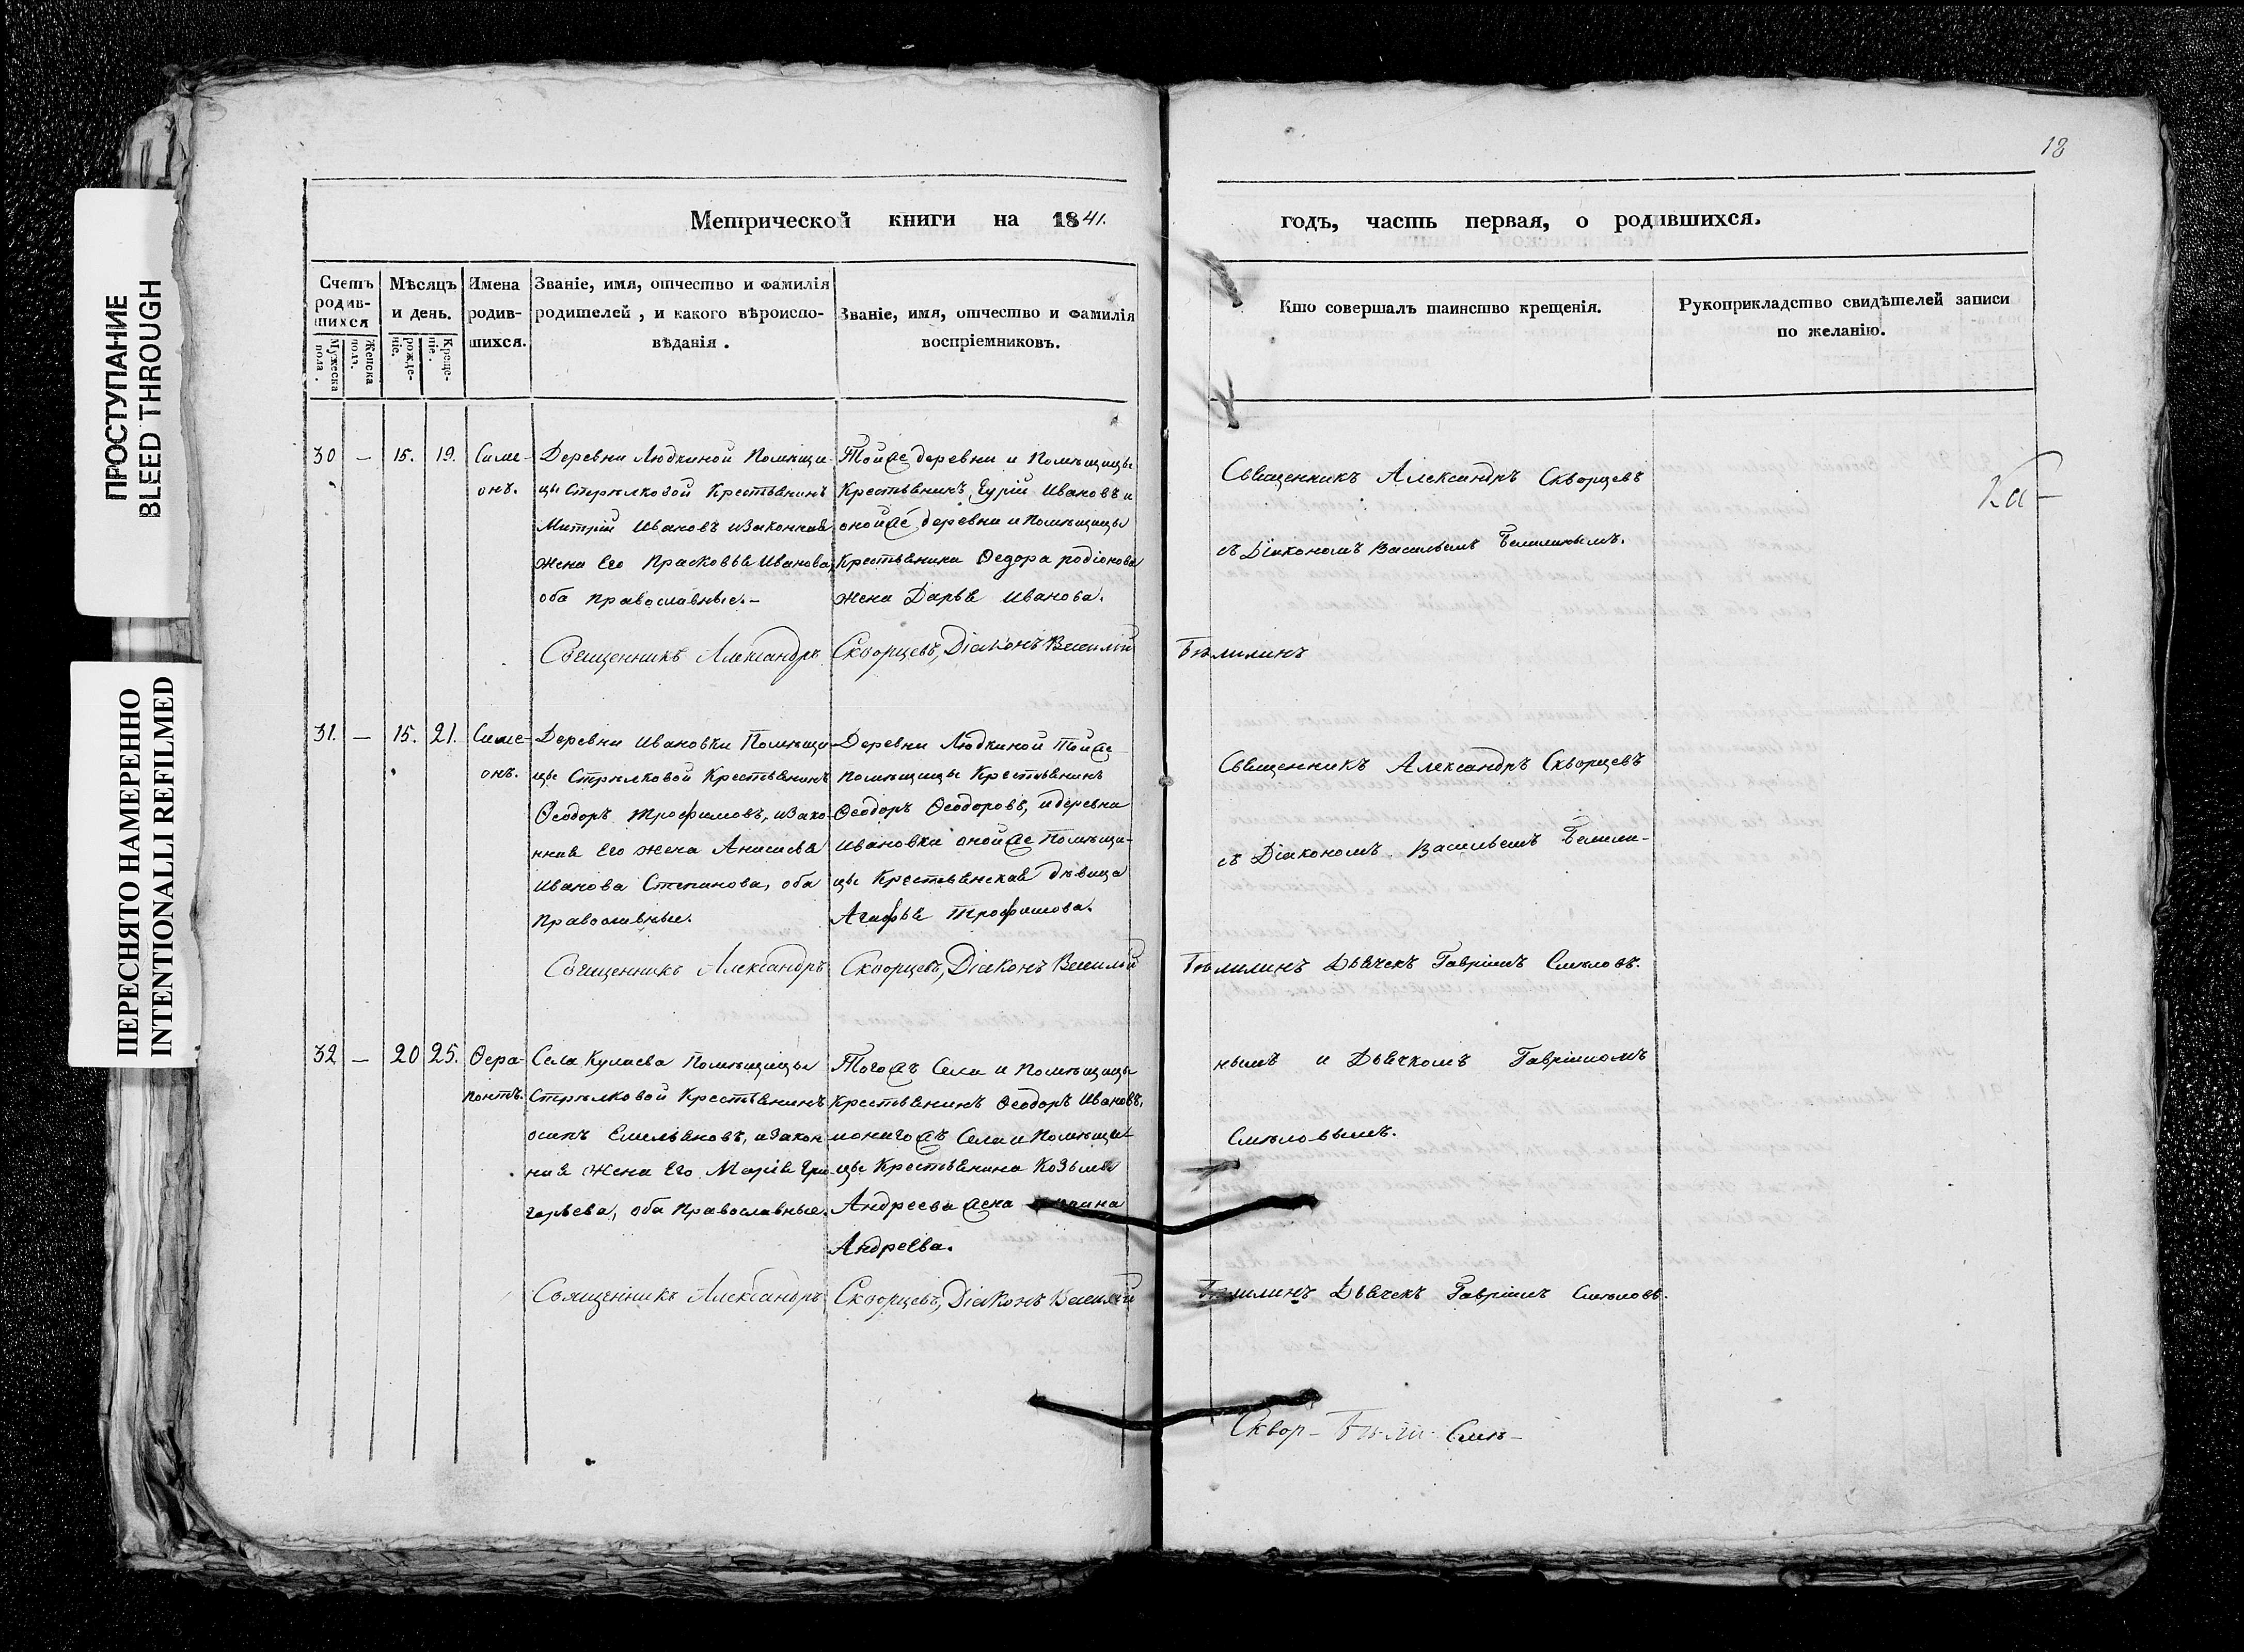 ПРОСТУПАНИЕ
BLEED THROUGH
ПЕРЕСНЯТО НАМЕРЕННО
INTENTIONALLI REFILMED
18
Метрической книги на 1841.
годъ, часть первая, о родившихся.
Счетъ родив-шихся
Мужеска пола.
Женска пола.
Мѣсяцъ и день.
рожде-ніе.
Креще-ніе.
Имена родив-шихся.
Званіе, имя, отчество и фамилія
родителей, и какого вѣроиспо-
вѣданія.
Званіе, имя, отчество и фамилія
воспріемниковъ.
Кто совершалъ таинство крещенія.
Рукоприкладство свидѣтелей записи
по желанію.
30 — 15. 19.
Симе-
онъ.
Деревни Людкиной Помѣщи-
цы Стрѣлковой Крестьянинъ
Митрій Ивановъ изаконная
жена его Прасковья Иванова,
оба православные.-
Тойже деревни и Помѣщицы
Крестьянинъ Гурій Ивановъ и
онойже деревни и Помѣщицы
Крестьянина Ѳедора родіонова
жена Дарья Иванова.
Священникъ Александръ Скворцевъ
съ Діакономъ Васильемъ
Ка-
Священникъ Александръ Скворцевъ, Діаконъ Василій Бѣлилинъ
31. — 15. 21.
Симе-
онъ.
Деревни Ивановки Помѣщи-
цы Стрѣлковой Крестьянинъ
Ѳеодоръ Трофимовъ, изако-
нная его жена Анисья
Иванова Степанова, оба
Православные.
Деревни Людкиной тойже
помѣщицы Крестьянинъ
Ѳеодоръ Ѳеодоровъ, идеревни
Ивановки онойже Помѣщи-
цы Крестьянская дѣвица
Агафья Трофимова.
Священникъ Александръ Скворцевъ
съ Діакономъ Васильемъ Бѣлили-
Священникъ Александръ Скворцевъ, Діаконъ Василій Бѣлилинъ Дьячекъ Гавріилъ Смѣловъ.
32 — 20 25.
Ѳера-
понтъ.
Села Кулаева Помѣщицы
Стрѣлковой Крестьянинъ
осипъ Емельяновъ, изакон-
ная жена его Марія Гри-
горьева, оба Православные.
Тогожъ Села и Помѣщицы
Крестьянинъ Ѳеодоръ Ивановъ,
Села и Помѣщи-
цы Крестьянина Козьмы
Андреева жена
Андреева.
нымъ и Дьячкомъ Гавріиломъ
Смѣловымъ.
Священникъ Александръ Скворцевъ, Діаконъ Василій Бѣлилинъ Дьячекъ Гавріилъ Смѣловъ.
Сквор- Бѣли- Смѣ-